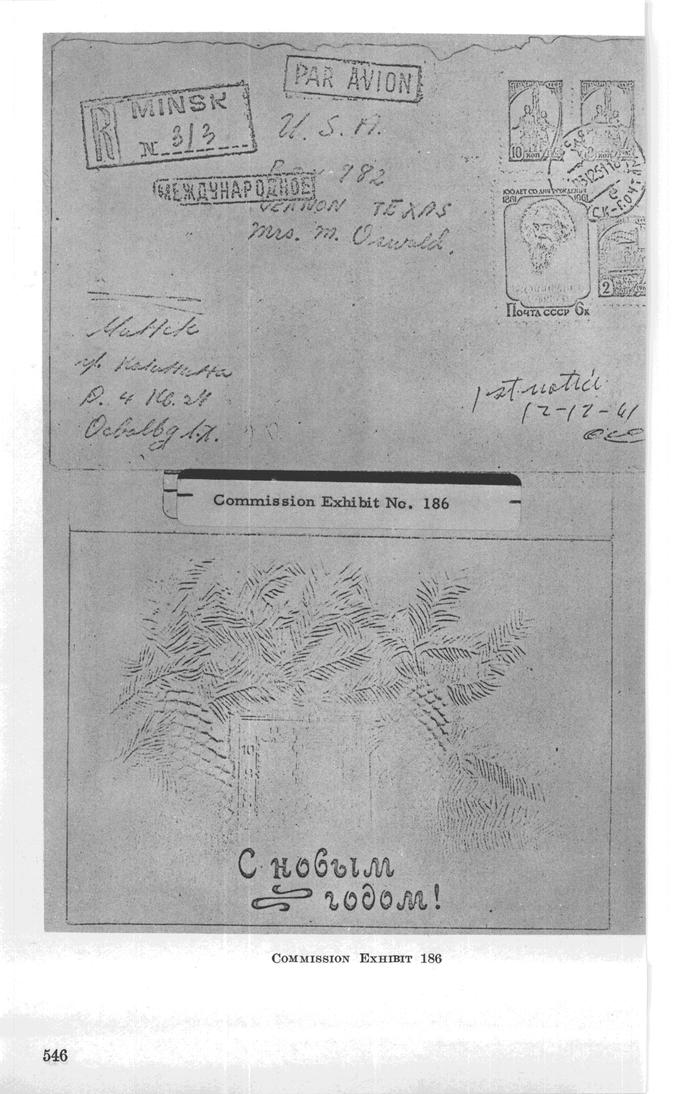 PAR AVION
R MINSK
N 3/3
U. S. A.
Box 982
МЕЖДУНАРОДНОЕ
VERNON TEXAS
Mrs. M. Oswald.
10 КОП
КОП
100 ЛЕТ СО ДНЯ РОЖДЕНИЯ
1861 1961
2
ПОЧТА СССР 6к
Минск
ул. Калинина
Д. 4 кв. 24
1st notice
12-12-61
Commission Exhibit No. 186
10
С новым
годом!
COMMISSION EXHIBIT 186
546